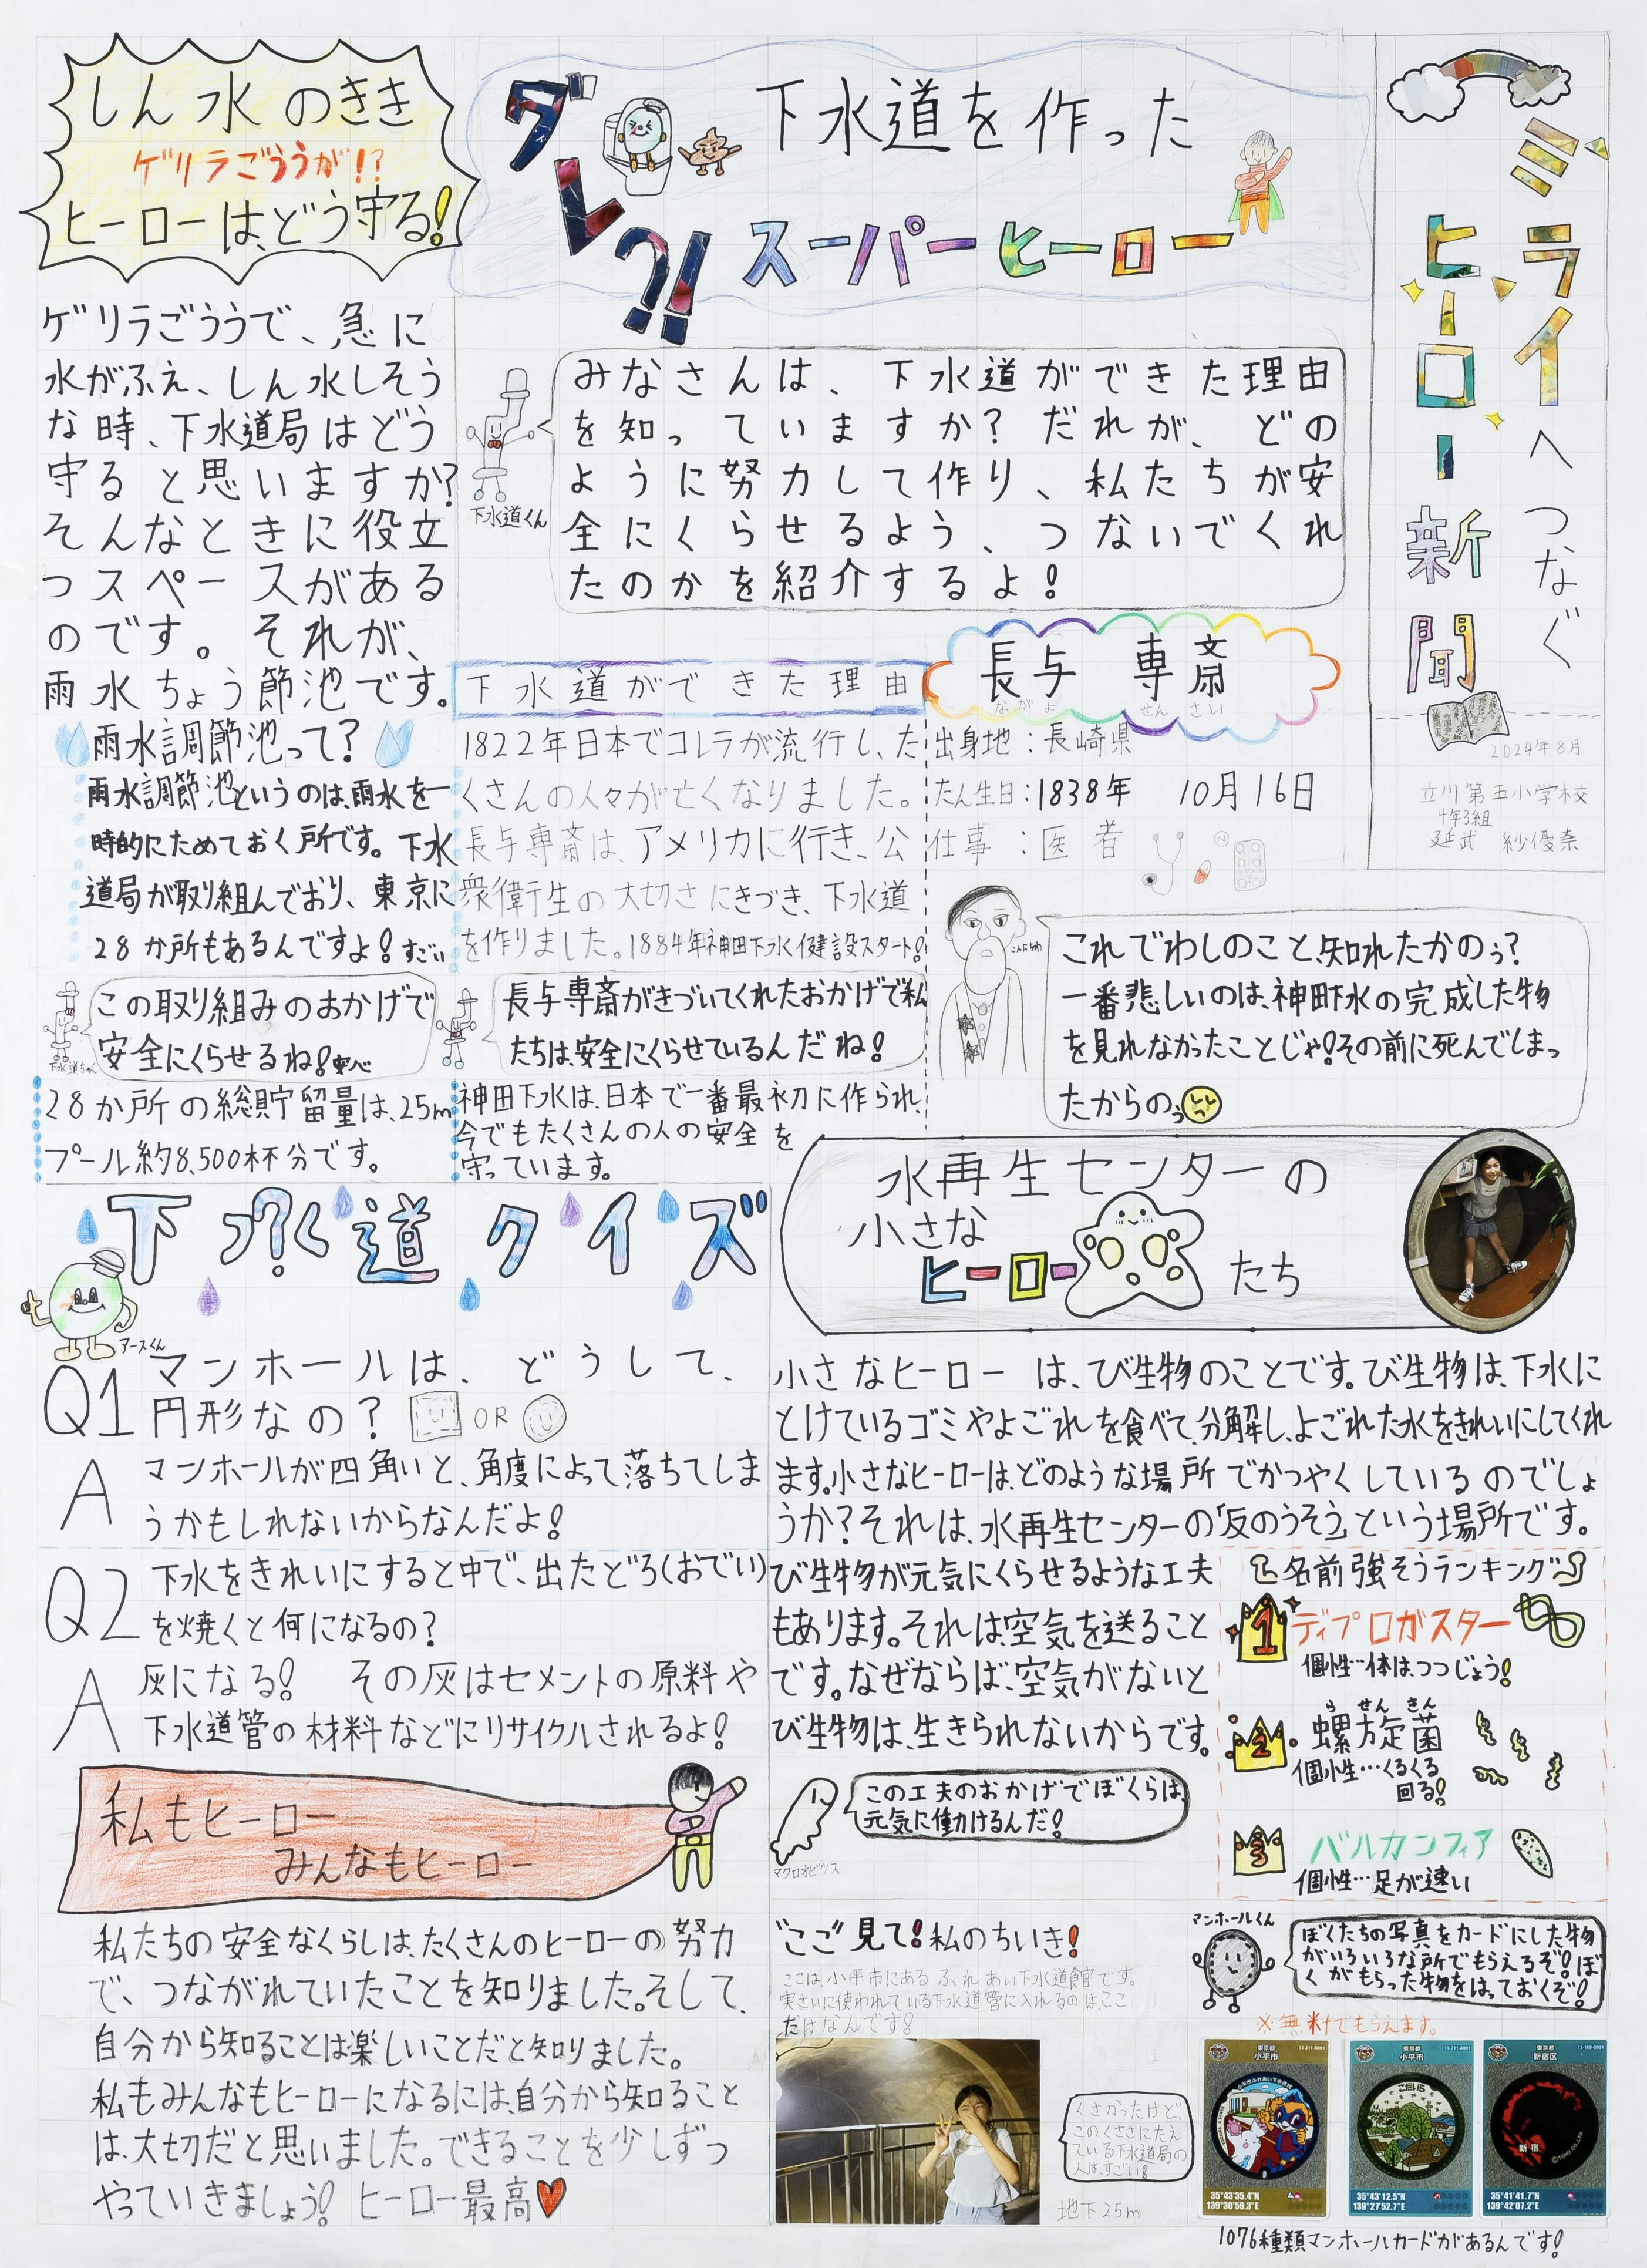 ミライへつなぐ
ヒーロー新聞
2024年8月
立川第五小学校
4年3組
延武 紗優奈
下水道を作った
ダレ?!スーパーヒーロー
みなさんは、下水道ができた理由
を知っていますか?だれが、どの
ように努力して作り、私たちが安
全にくらせるよう、つないでくれ
たのかを紹介するよ!
下水道くん
長与 専斎
ながよ せんさい
出身地:長崎県
たん生日:1838年 10月16日
仕事:医者
こんにちわ
これでわしのこと、知れたかのぅ?
一番悲しいのは、神田下水の完成した物
を見れなかったことじゃ!その前に死んでしまっ
たからのぅ
下水道ができた理由
1822年日本でコレラが流行し、た
くさんの人々が亡くなりました。
長与専斎は、アメリカに行き、公
衆衛生の大切さにきづき、下水道
を作りました。1884年神田下水建設スタート!
長与専斎がきづいてくれたおかげで私
たちは、安全にくらせているんだね!
神田下水は、日本で一番最初に作られ、
今でもたくさんの人の安全を
守っています。
しん水のきき
ゲリラごううが!?
ヒーローは、どう守る!
ゲリラごううで、急に
水がふえ、しん水しそう
な時、下水道局はどう
守ると思いますか?
そんなときに役立
つスペースがある
のです。それが、
雨水ちょう節池です。
雨水調節池って?
雨水調節池というのは、雨水を一
時的にためておく所です。下水
道局が取り組んでおり、東京に
28か所もあるんですよ!すごい
この取り組みのおかげで
安全にくらせるね!安心
下水道ちゃん
28か所の総貯留量は、25m
プール約8,500杯分です。
水再生センターの
小さな
ヒーローたち
小さなヒーローは、び生物のことです。び生物は、下水に
とけているゴミやよごれを食べて、分解し、よごれた水をきれいにしてくれ
ます。小さなヒーローは、どのような場所でかつやくしているのでしょ
うか?それは、水再生センターの「反のうそう」という場所です。
び生物が元気にくらせるような工夫
もあります。それは、空気を送ること
です。なぜならば、空気がないと
び生物は、生きられないからです。
マクロオビツス
この工夫のおかげでぼくらは、
元気に働けるんだ!
名前強そうランキング
1 ディプロガスター
個性…体はつつじょう!
2 螺旋菌
らせんきん
個性…くるくる
回る!
3 バルカンフィア
個性…足が速い
下っ?く道クイズ
アースくん
Q1 マンホールは、どうして、
円形なの? OR
A マンホールが四角いと、角度によって落ちてしま
うかもしれないからなんだよ!
Q2 下水をきれいにすると中で、出たどろ(おでい)
を焼くと何になるの?
A 灰になる! その灰はセメントの原料や
下水道管の材料などにリサイクルされるよ!
私もヒーロー
みんなもヒーロー
私たちの安全なくらしは、たくさんのヒーローの努力
で、つながれていたことを知りました。そして、
自分から知ることは楽しいことだと知りました。
私もみんなもヒーローになるには、自分から知ること
は、大切だと思いました。できることを少しずつ
やっていきましょう! ヒーロー最高
ここ見て!私のちいき!
ここは、小平市にあるふれあい下水道館です。
実さいに使われている下水道管に入れるのはここ
だけなんです!
くさかったけど、
このくささにたえ
ている下水道局の
人は、すごい!
地下25m
マンホールくん
ぼくたちの写真をカードにした物
がいろいろな所でもらえるぞ!ぼ
くがもらった物をはっておくぞ!
※無料でもらえます。
東京都
小平市
13-211-B001
35°43'35.4"N
139°30'50.3"E
東京都
小平市
13-211-A001
こだいら
35°43'12.5"N
139°27'52.7"E
東京都
新宿区
13-100-D001
新宿
35°41'41.7"N
139°42'07.2"E
1076種類マンホールカードがあるんです!